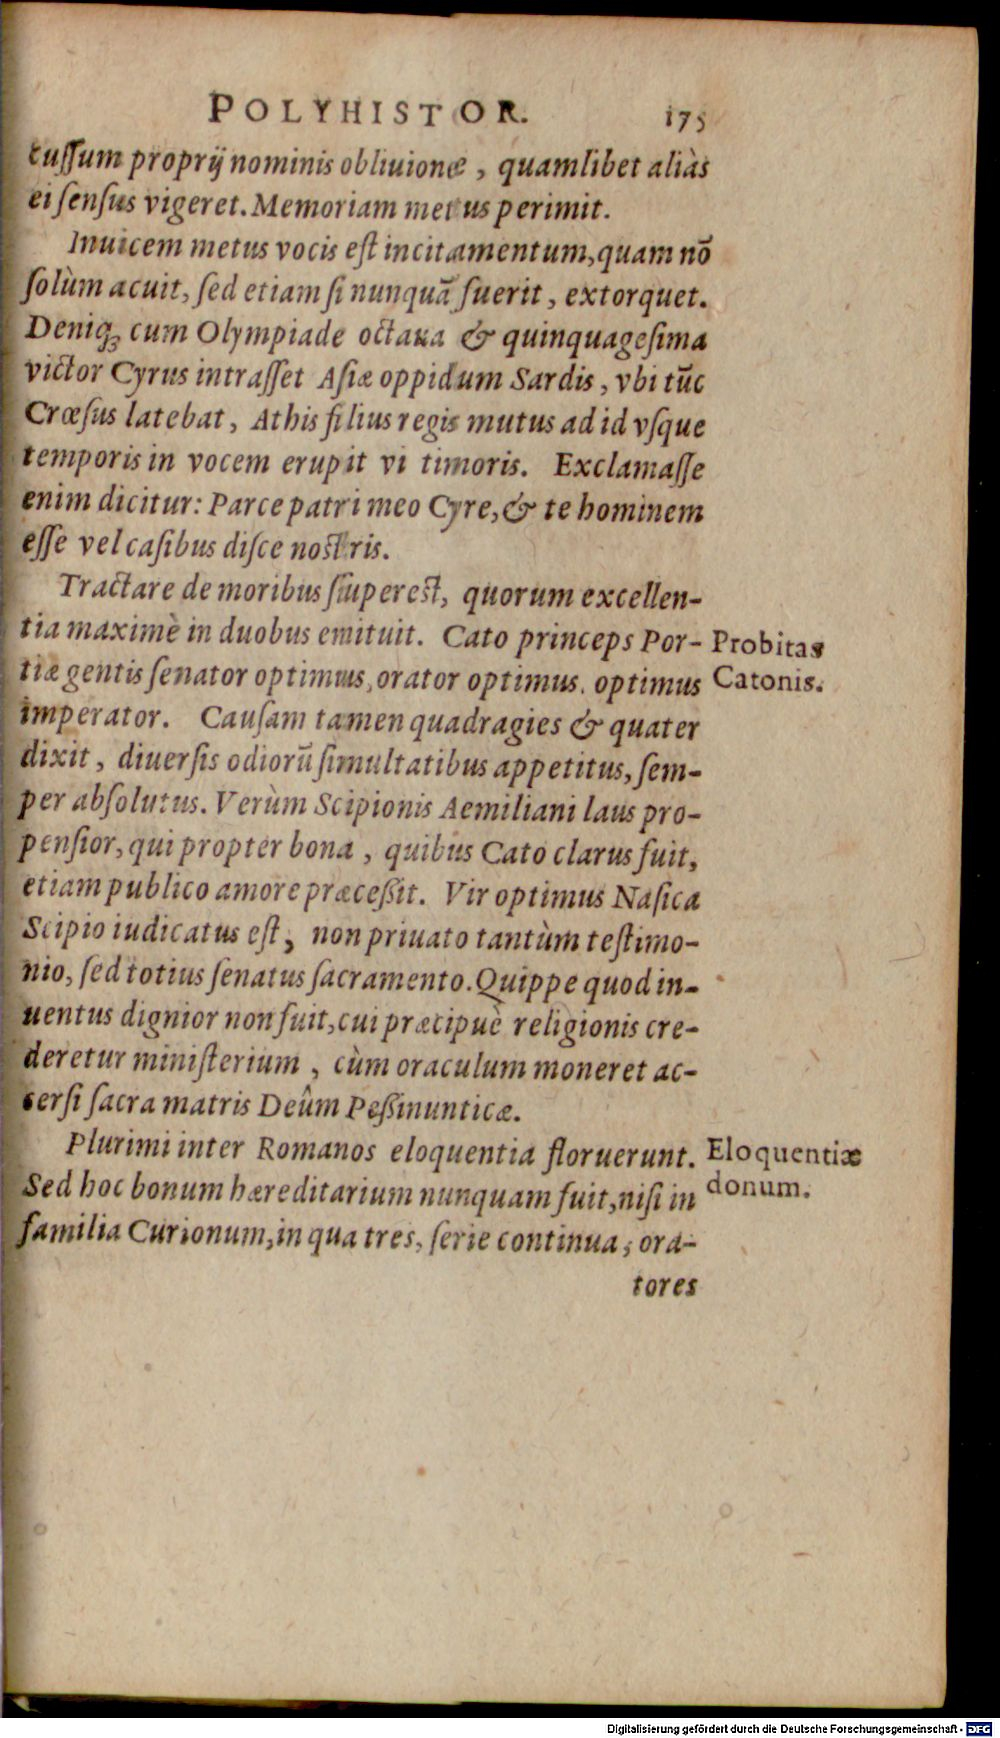 POLYHISTOR. 175
cuſſum proprij nominis obliuione, quamlibet aliàs
ei ſenſus vigeret. Memoriam metus perimit.
Inuicem metus vocis eſt incitamentum, quam nō
ſolùm acuit, ſed etiam ſi nunquā fuerit, extorquet.
Deniqꝫ cum Olympiade octaua & quinquageſima
victor Cyrus intraſſet Aſiæ oppidum Sardis, vbi tūc
Crœſus latebat, Athis filius regis mutus ad id vſque
temporis in vocem erupit vi timoris. Exclamaſſe
enim dicitur: Parce patri meo Cyre, & te hominem
eſſe vel caſibus diſce noſtris.
Tractare de moribus ſupereſt, quorum excellen-
tia maximè in duobus emituit. Cato princeps Por-
Probitas
tiæ gentis ſenator optimus, orator optimus, optimus
Catonis.
imperator. Cauſam tamen quadragies & quater
dixit, diuerſis odiorū ſimultatibus appetitus, ſem-
per abſolutus. Verùm Scipionis Aemiliani laus pro-
penſior, qui propter bona, quibus Cato clarus fuit,
etiam publico amore præceßit. Vir optimus Naſica
Scipio iudicatus eſt, non priuato tantùm teſtimo-
nio, ſed totius ſenatus ſacramento. Quippe quod in-
uentus dignior non fuit, cui præcipuè religionis cre-
deretur miniſterium, cùm oraculum moneret ac-
cerſi ſacra matris Deûm Peßinunticæ.
Plurimi inter Romanos eloquentia floruerunt.
Eloquentiæ
Sed hoc bonum hæreditarium nunquam fuit, niſi in
donum.
familia Curionum, in qua tres, ſerie continua, ora-
tores
Digitalisierung gefördert durch die Deutsche Forschungsgemeinschaft - DFG